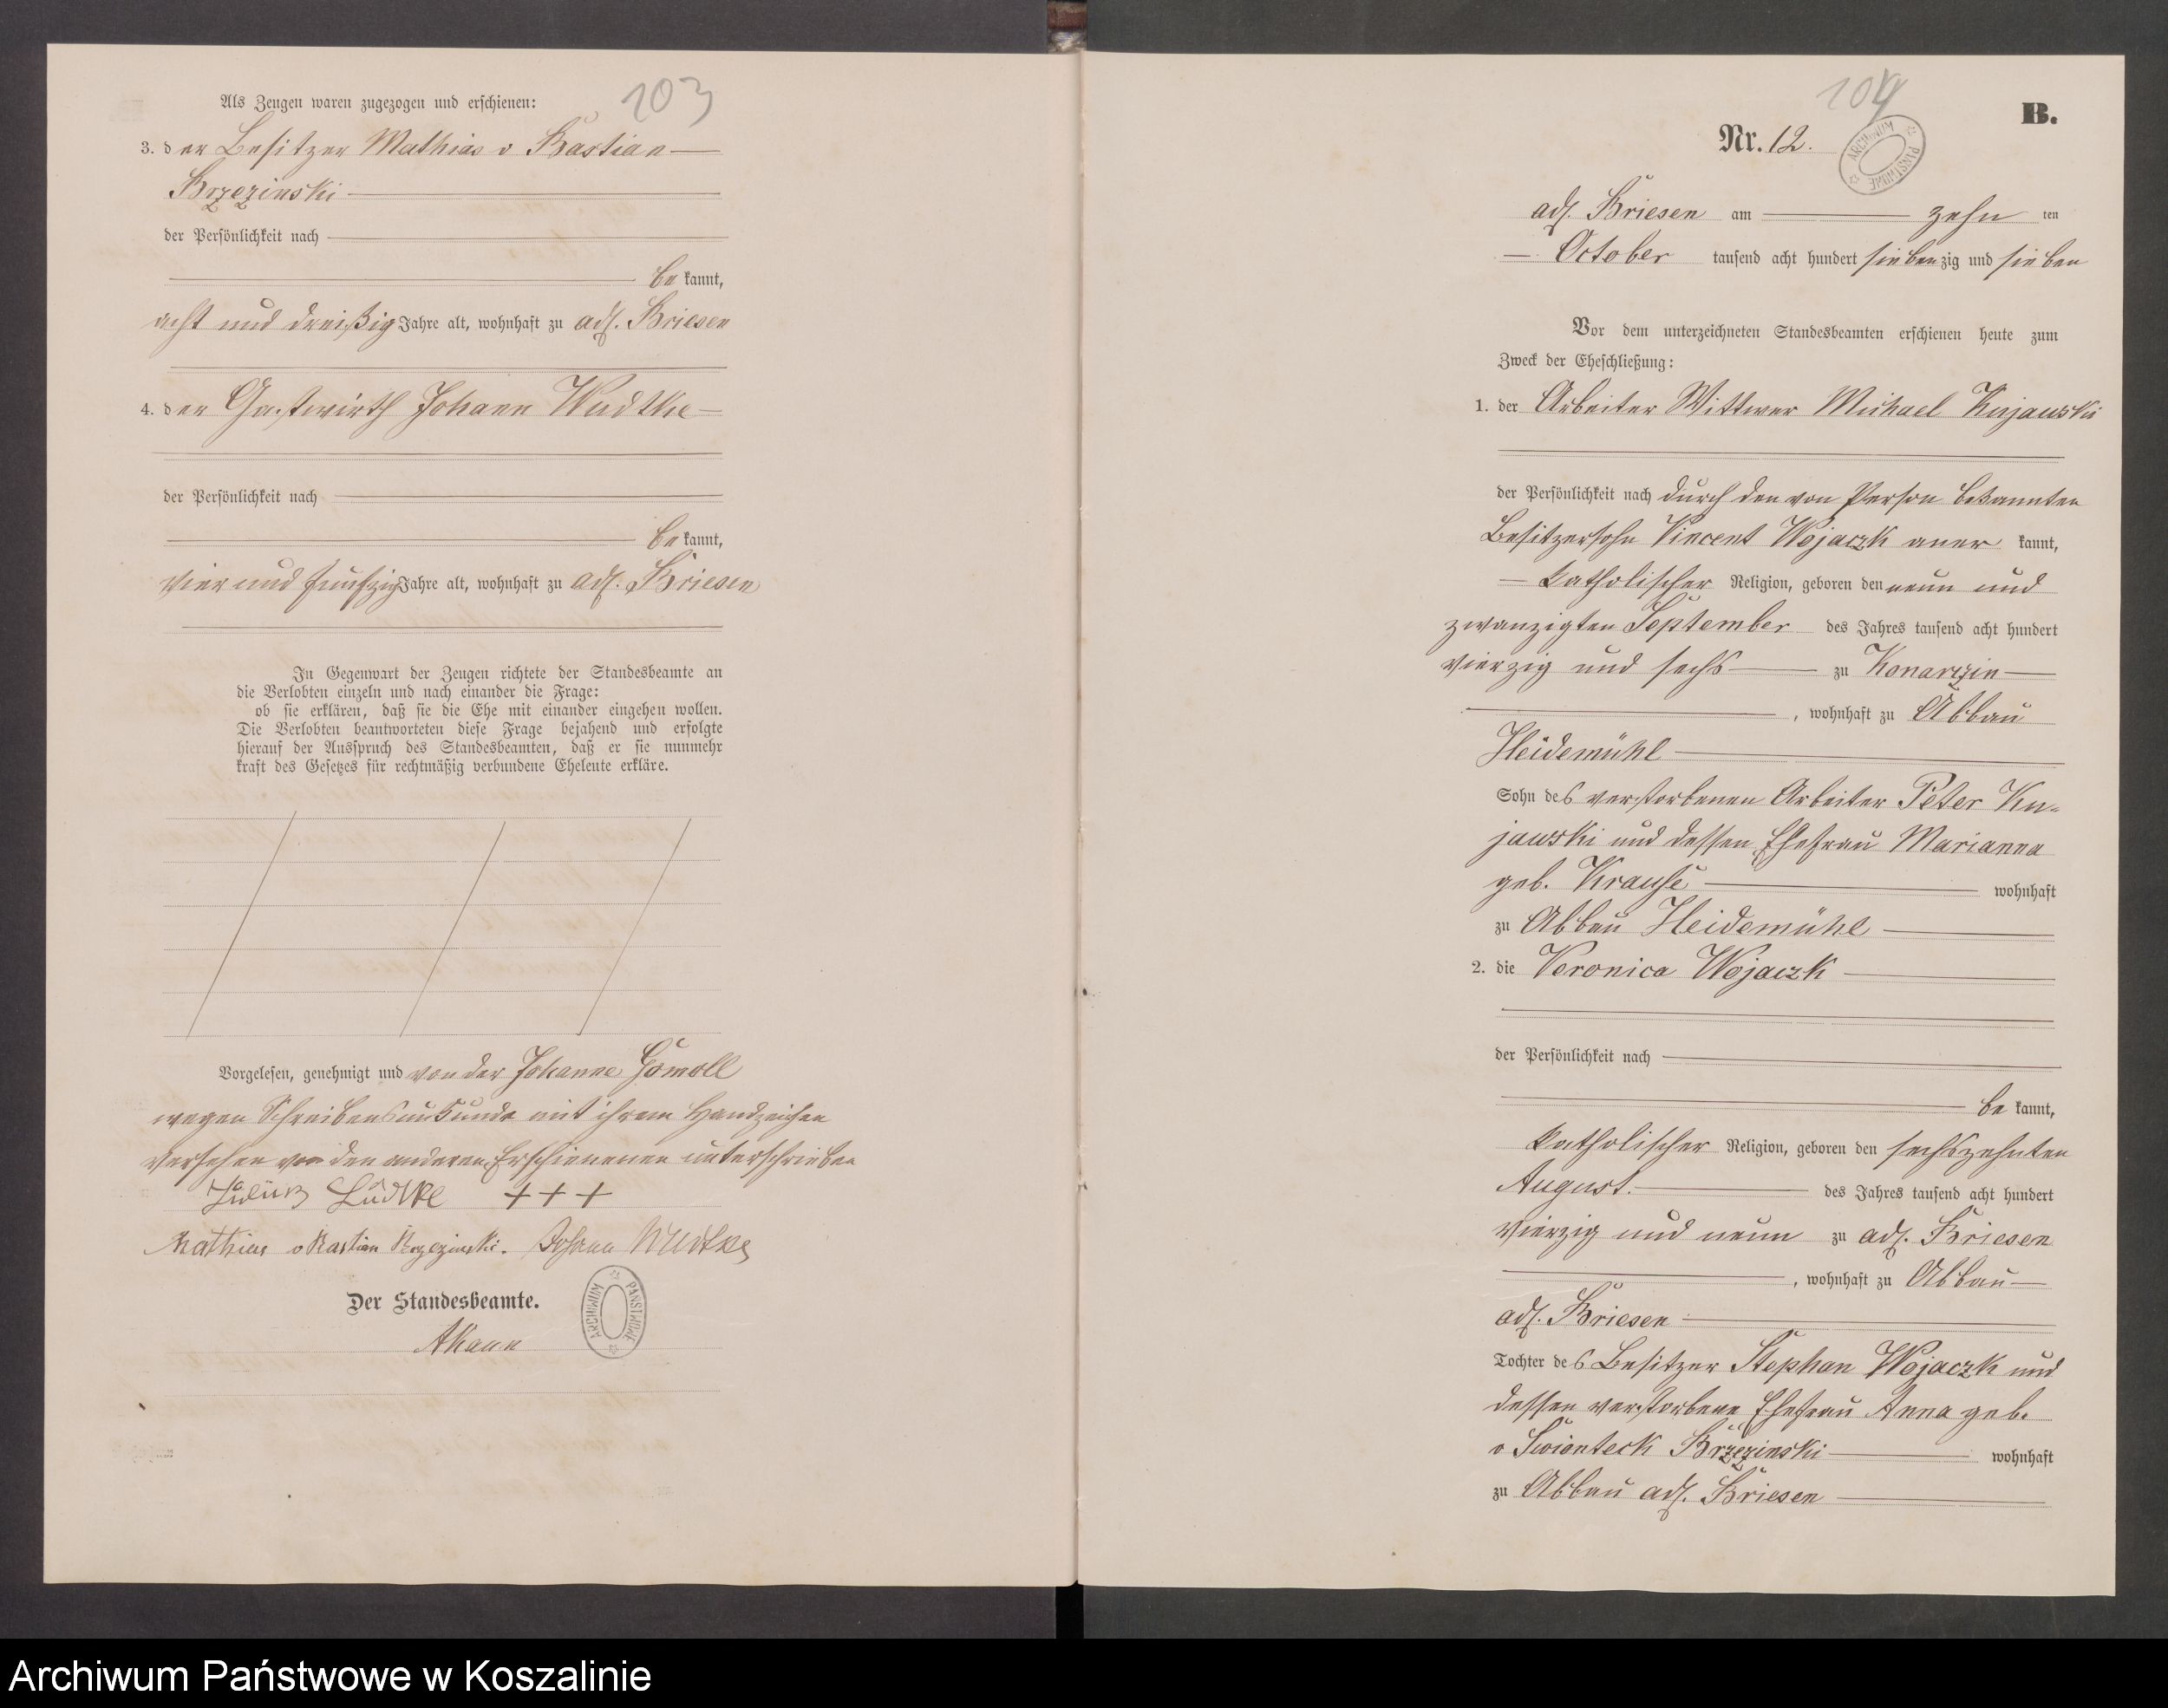 103
Als Zeugen waren zugezogen und erschienen:
3. der Besitzer Mathias v Bastian
Brzezinski
der Persönlichkeit nach
be kannt,
acht und dreißig Jahre alt, wohnhaft zu adl. Briesen
4. der Gastwirth Johann Wudtke
der Persönlichkeit nach
be kannt,
vier und funfzig Jahre alt, wohnhaft zu adl. Briesen
In Gegenwart der Zeugen richtete der Standesbeamte an
die Verlobten einzeln und nach einander die Frage:
ob sie erklären, daß sie die Ehe mit einander eingehen wollen.
Die Verlobten beantworteten diese Frage bejahend und erfolgte
hierauf der Ausspruch des Standesbeamten, daß er sie nunmehr
kraft des Gesetzes für rechtmäßig verbundene Eheleute erkläre.
Vorgelesen, genehmigt und von der Johanne Gomoll
wegen Schreibensunkunde mit ihrem Handzeichen
versehen von den anderen Erschienenen unterschrieben
Lüdtke +++
Mathias v Bastian Brzezinski. Johann Wudtke
Der Standesbeamte.
ARCHIWUM PAŃSTWOWE
104
B.
Nr. 12.
ARCHIWUM PAŃSTWOWE
adl. Briesen am zehn ten
October tausend acht hundert siebenzig und sieben
Vor dem unterzeichneten Standesbeamten erschienen heute zum
Zweck der Eheschließung:
1. der Arbeiter Wittwer Michael Kujawski
der Persönlichkeit nach durch den von Person bekannten
Besitzersohn Vincent Wojaczk aner kannt,
katholischer Religion, geboren den neun und
zwanzigten September des Jahres tausend acht hundert
vierzig und sechs zu Konarczin
, wohnhaft zu Abbau
Heidemühl
Sohn des verstorbenen Arbeiter Peter Ku-
jawski und dessen Ehefrau Marianna
geb. Krause wohnhaft
zu Abbau Heidemühl
2. die Veronica Wojaczk
der Persönlichkeit nach
be kannt,
katholischer Religion, geboren den sechszehnten
August. des Jahres tausend acht hundert
vierzig und neun zu adl. Briesen
, wohnhaft zu Abbau
adl. Briesen
Tochter des Besitzer Stephan Wojaczk und
dessen verstorbene Ehefrau Anna geb.
v Swionteck Brzezinski wohnhaft
zu Abbau adl. Briesen
Archiwum Państwowe w Koszalinie